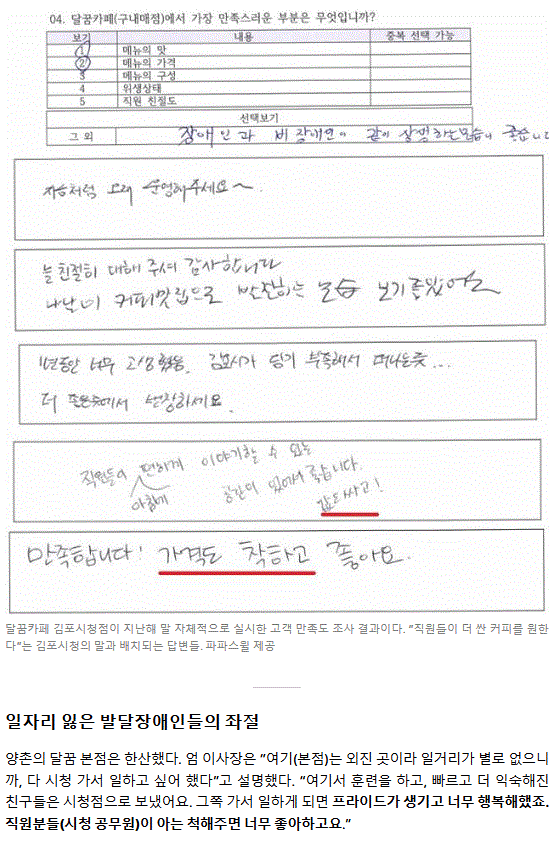 04. 달꿈카페(구내매점)에서 가장 만족스러운 부분은 무엇입니까?
보기 내용 중복 선택 가능
1 메뉴의 맛
2 메뉴의 가격
3 메뉴의 구성
4 위생상태
5 직원 친절도
선택보기
그 외 장애인과 비장애인이 같이 설명하는모습이 좋습니다
지금처럼 오래 운영해주세요~.
늘 친절히 대해 주셔 감사합니다
나날이 커피맛집으로 발전하는 모습 보기좋았어요
1년동안 너무 고생했음. 김포시가 많이 부족해서 떠나는듯...
더 좋은곳에서 번창하세요.
직원들이 편하게 이야기할 수 있는
아침에 공간이 있어서 좋습니다.
값도 싸고!
만족합니다! 가격도 착하고 좋아요.
달꿈카페 김포시청점이 지난해 말 자체적으로 실시한 고객 만족도 조사 결과이다. "직원들이 더 싼 커피를 원한
다"는 김포시청의 말과 배치되는 답변들. 파파스윌 제공
일자리 잃은 발달장애인들의 좌절
양촌의 달꿈 본점은 한산했다. 엄 이사장은 "여기(본점)는 외진 곳이라 일거리가 별로 없으니
까, 다 시청 가서 일하고 싶어 했다"고 설명했다. "여기서 훈련을 하고, 빠르고 더 익숙해진
친구들은 시청점으로 보냈어요. 그쪽 가서 일하게 되면 프라이드가 생기고 너무 행복해했죠.
직원분들(시청 공무원)이 아는 척해주면 너무 좋아하고요."